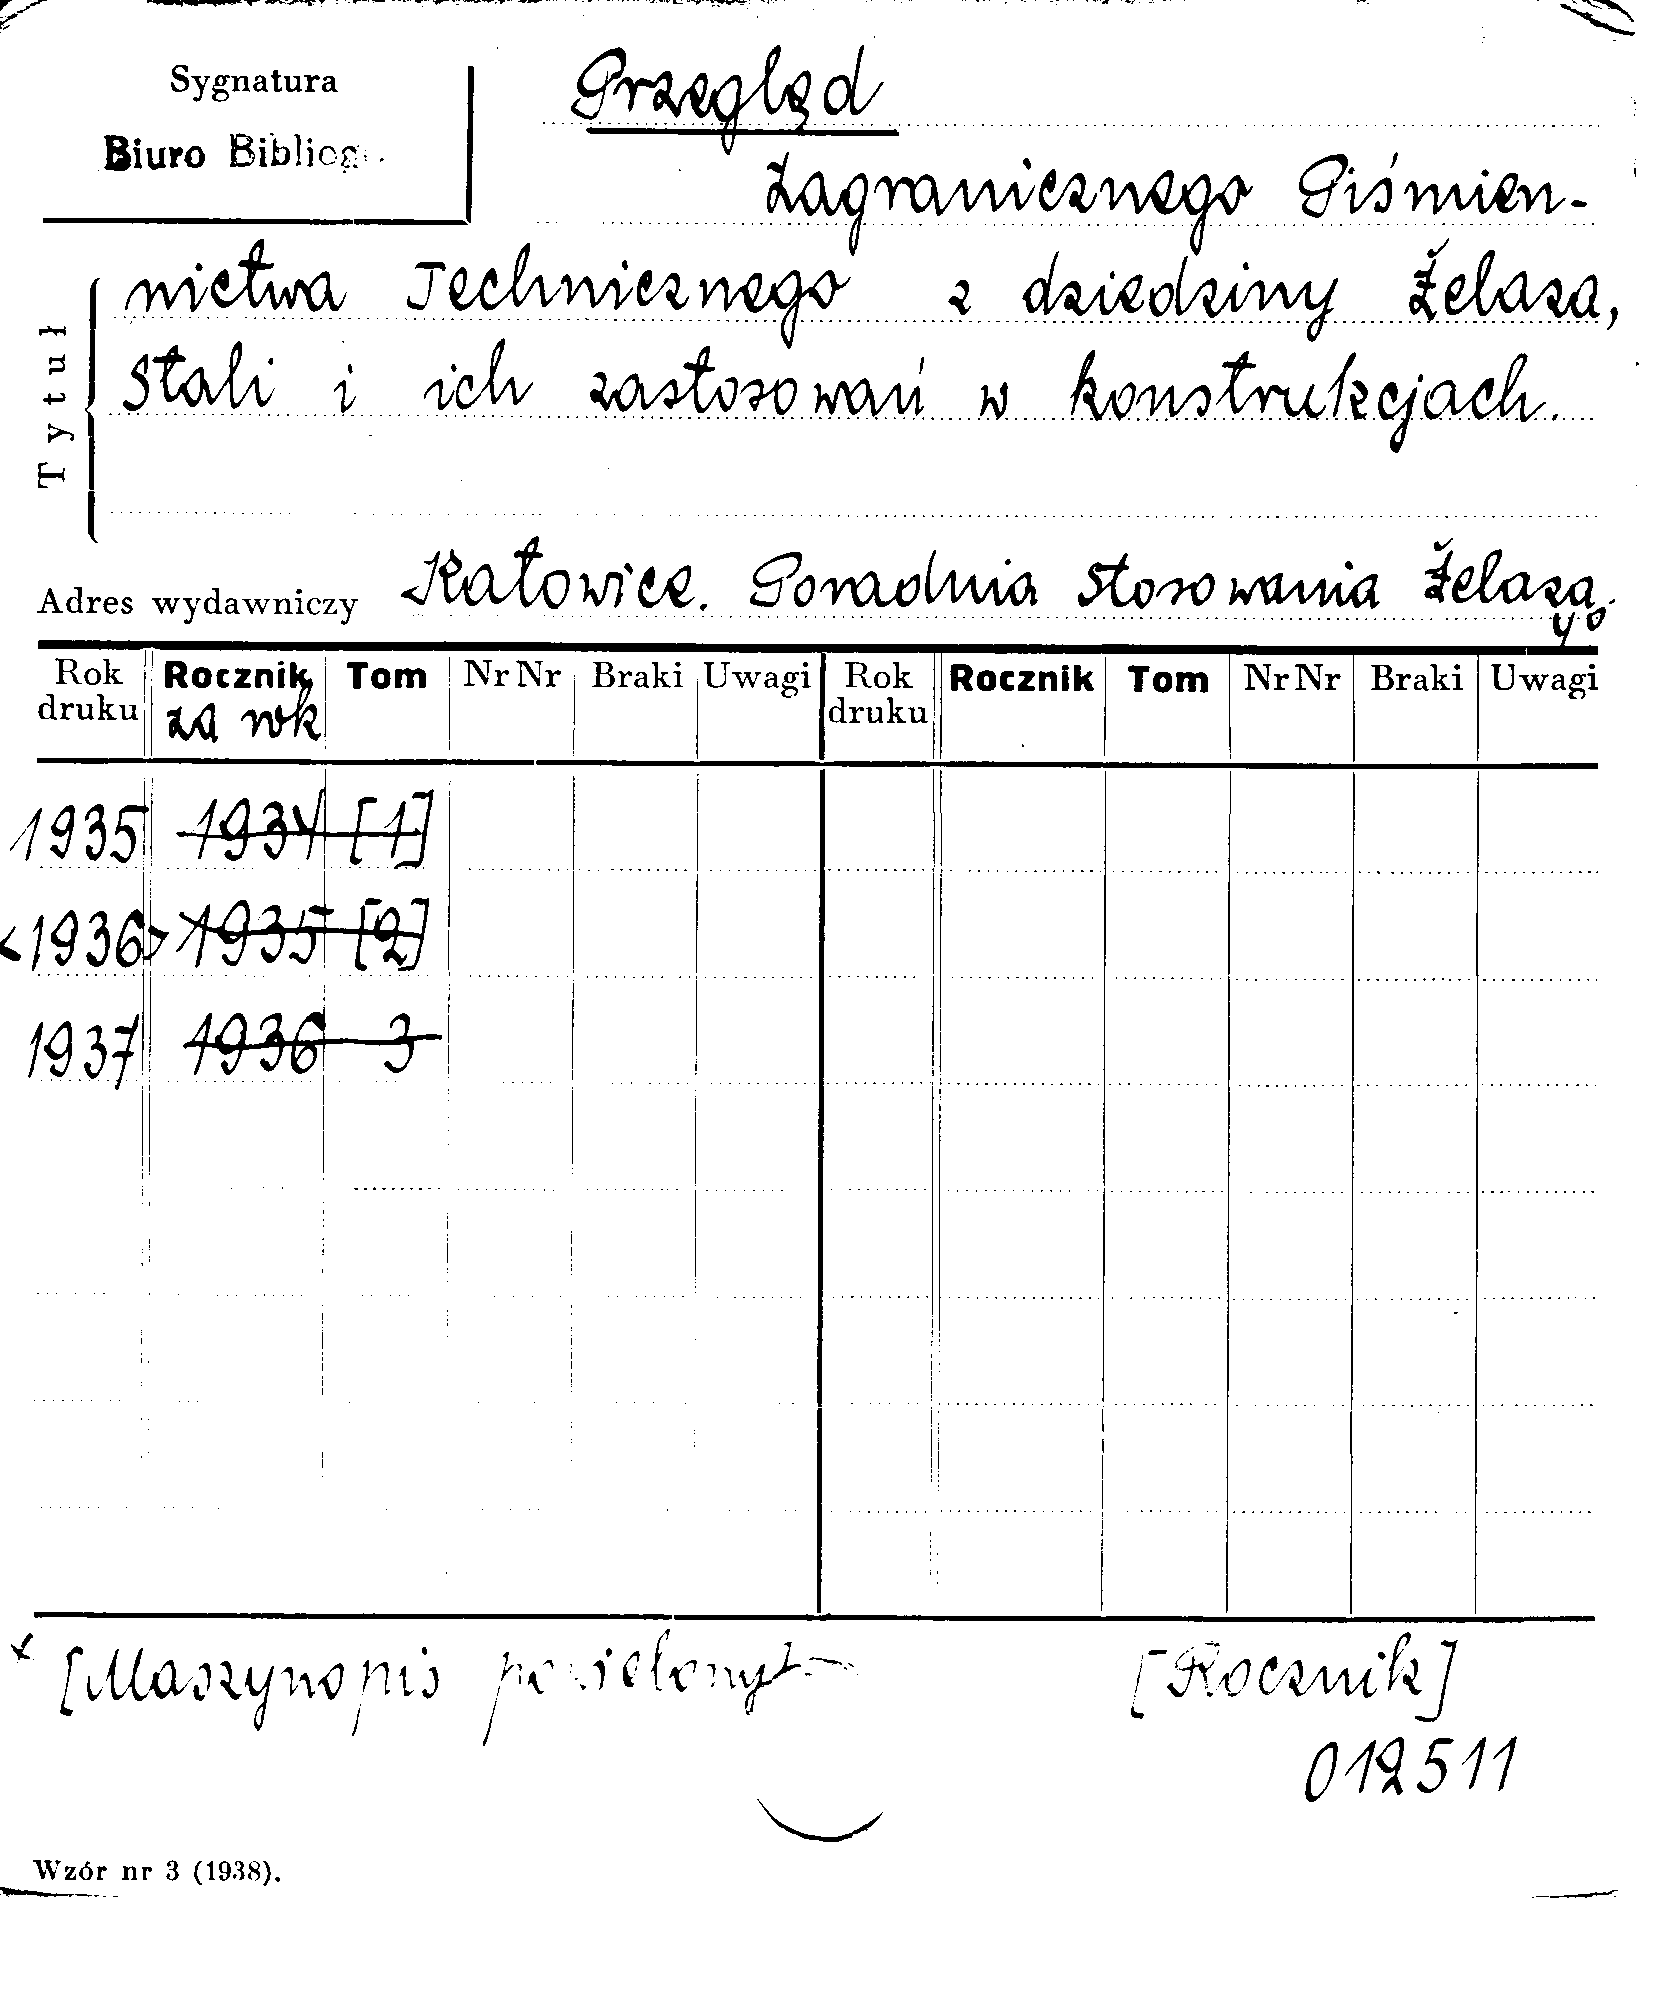 Sygnatura
Biuro Bibliog
Przegląd
Zagranicznego Piśmien-
nictwa Technicznego z dziedziny Żelaza,
Stali i ich zastosowań w konstrukcjach.
Tytuł
Adres wydawniczy Katowice. Poradnia Stosowania Żelaza.
4°
Rok druku Rocznik za rok Tom Nr Nr Braki Uwagi Rok druku Rocznik Tom Nr Nr Braki Uwagi
1935 1934 [1]
<1936> 1935 [2]
1937 1936 3
[Maszynopis powielony] [Rocznik]
012511
Wzór nr 3 (1938).